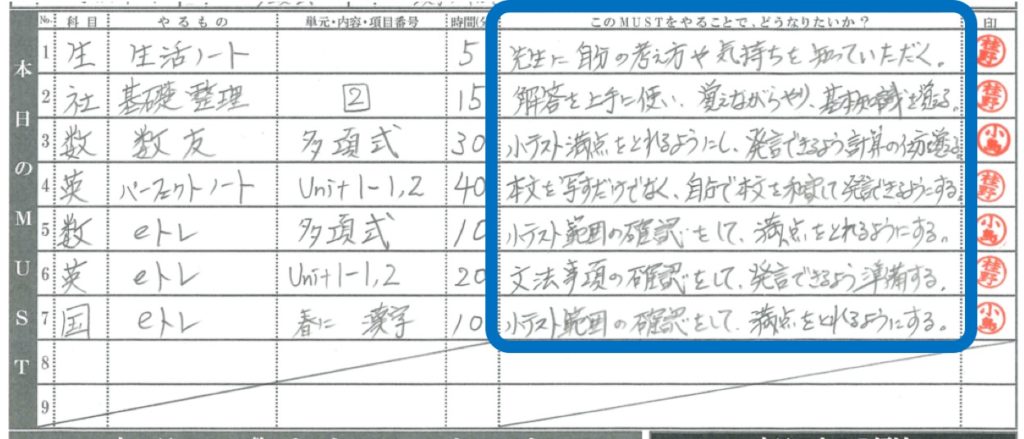 No. 科目 やるもの 単元・内容・項目番号 時間(分) このMUSTをやることで、どうなりたいか? 印
本日のMUST
1 生 生活ノート 5 先生に自分の考え方や気持ちを知っていただく。 桂野
2 社 基礎整理 2 15 解答を上手に使い、覚えながらやり、基本知識を覚える。 桂野
3 数 数友 多項式 30 小テスト満点をとれるようにし、発言できるよう計算の仕方を覚える。 小島
4 英 パーフェクトノート Unit 1-1,2 40 本文を写すだけでなく、自分で本文を和訳して発言できるようにする。 桂野
5 数 eトレ 多項式 10 小テスト範囲の確認をして、満点をとれるようにする。 小島
6 英 eトレ Unit 1-1,2 20 文法事項の確認をして、発言できるよう準備する。 桂野
7 国 eトレ 春に 漢字 10 小テスト範囲の確認をして、満点をとれるようにする。 小島
8
9